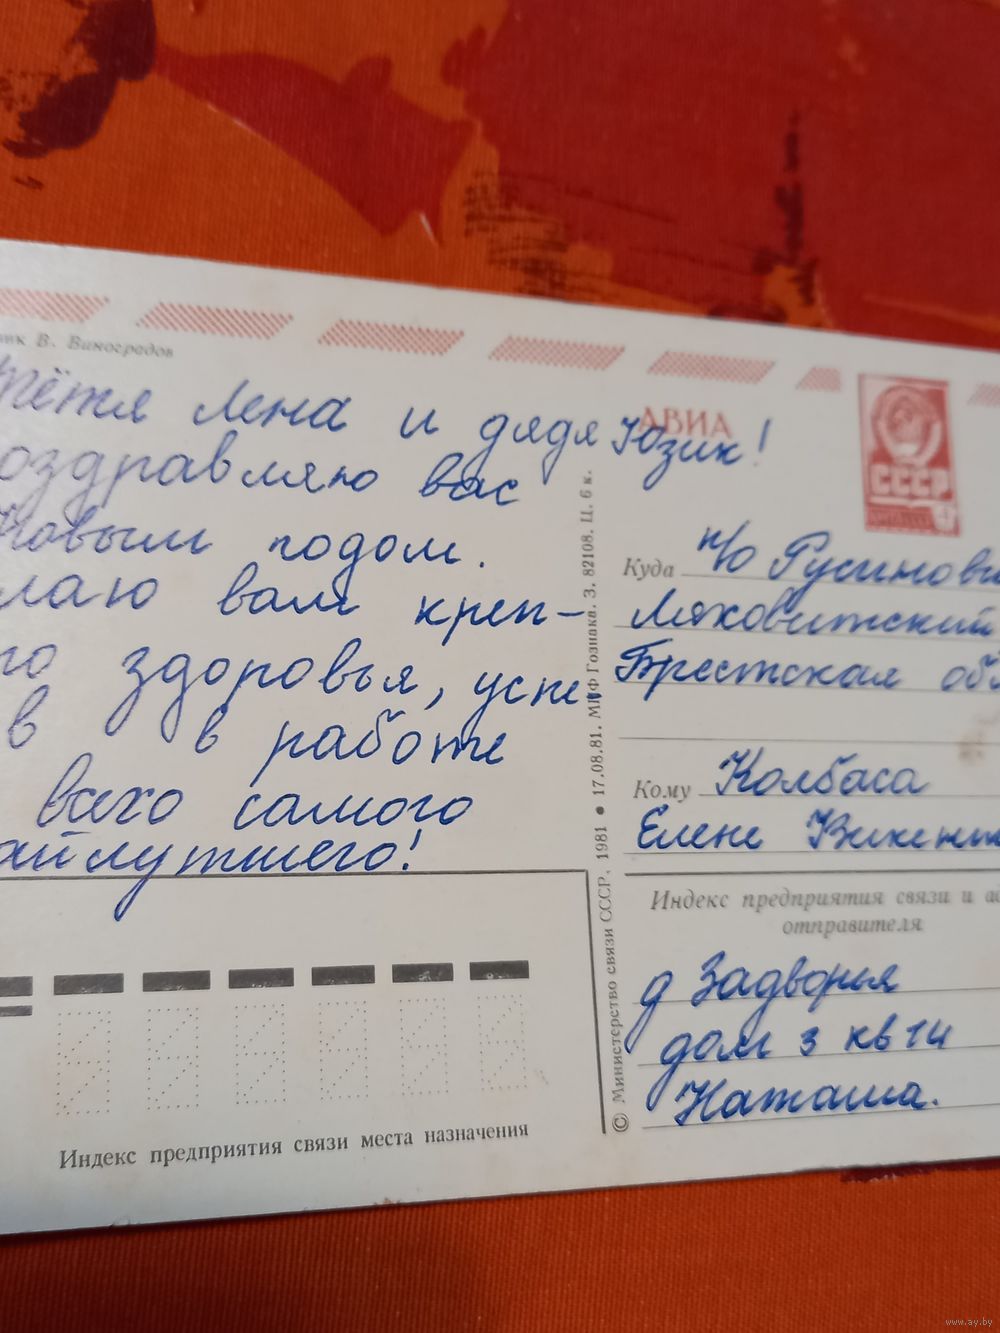 В. Виноградов
Тётя Лена и дядя Юзик!
оздравляю вас
Новым годом.
лаю вам креп-
го здоровья, успе-
в в работе
всего самого
айлутшего!
АВИА
СССР
Куда п/о Русинови
Ляховитский
Брестская об
Кому Колбаса
Елене Викен
Индекс предприятия связи и а
отправителя
д Задворья
дом 3 кв 14
Наташа.
© Министерство связи СССР, 1981 • 17.08.81. МПФ Гознака. З. 82108. Ц. 6 к.
Индекс предприятия связи места назначения
www.ay.by